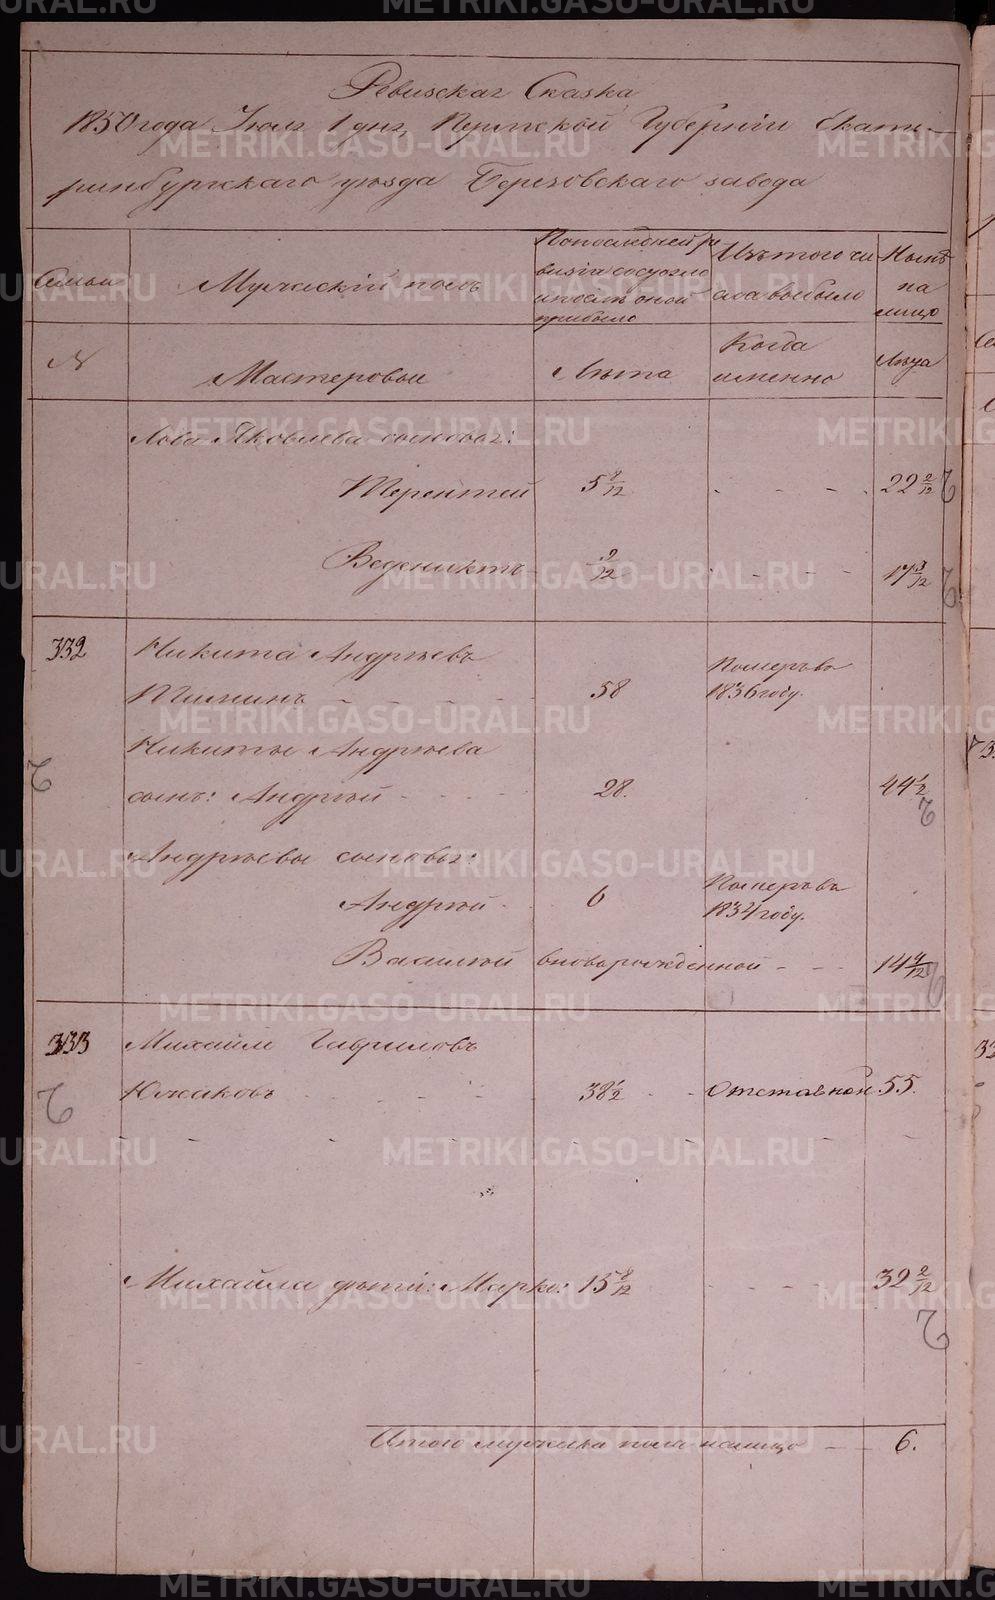 Ревизская Сказка
1850 года Июля 1 дня, Пермской Губернiи Екате-
ринбургскаго уѣзда Березовскаго завода
Семьи
Мужескiй полъ
По последней ре
визiи состояло
и после оной
прибыло
Изъ того чи
сла выбыло
Нынѣ
на
лицо
№
Мастеровые
Лѣта
Когда
именно
Лѣта
Льва Яковлева сыновья:
Терентей 5 9/12 - - - 22 2/12
Веденихтъ 9/12 - - - 17 3/12
332 Никита Андрѣевъ
Тиминъ - - - - 58
Померъ въ
1836 году.
Никиты Андрѣева
сынъ: Андрѣй - - - 28. 44 1/2
Андрѣевы сыновья:
Андрѣй 6
Померъ въ
1834 году.
Василiй вновьрожденной - - - 14 9/12
333 Михайло Гавриловъ
Южаковъ 38 1/2 - - Отставной 55.
Михайла дѣти: Марко: 15 9/12 - - 32 2/12
Итого мужеска пола налицо - - 6.
METRIKI.GASO-URAL.RU